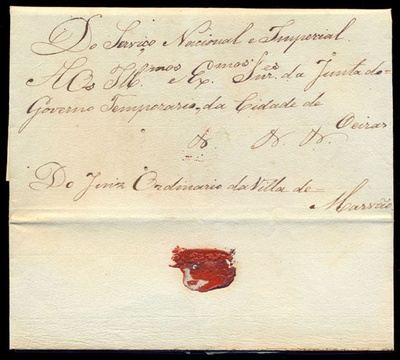 Do Serviço Nacional e Imperial.
Aos Ill.mos e Ex.mos Snres. da Junta do
Governo Temporario, da Cidade de
Oeiras
Do Juiz Ordinario da Villa de
Marvão